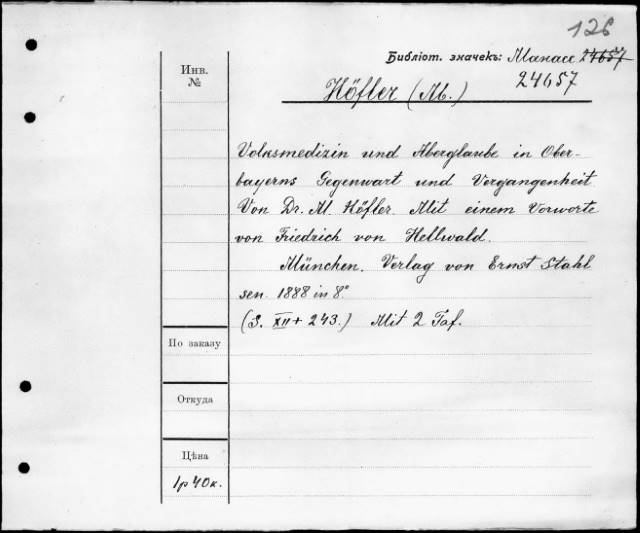 126
Библіот. значекъ: Манасс 24657
24657
Инв.
№
Höfler (M.)
Volksmedizin und Aberglaube in Ober-
bayerns Gegenwart und Vergangenheit
Von Dr. M. Höfler. Mit einem Vorworte
von Friedrich von Hellwald.
München. Verlag von Ernst Stahl
sen. 1888 in 8°
(S. XII + 243.) Mit 2 Taf.
По заказу
Откуда
Цѣна
1р 40к.